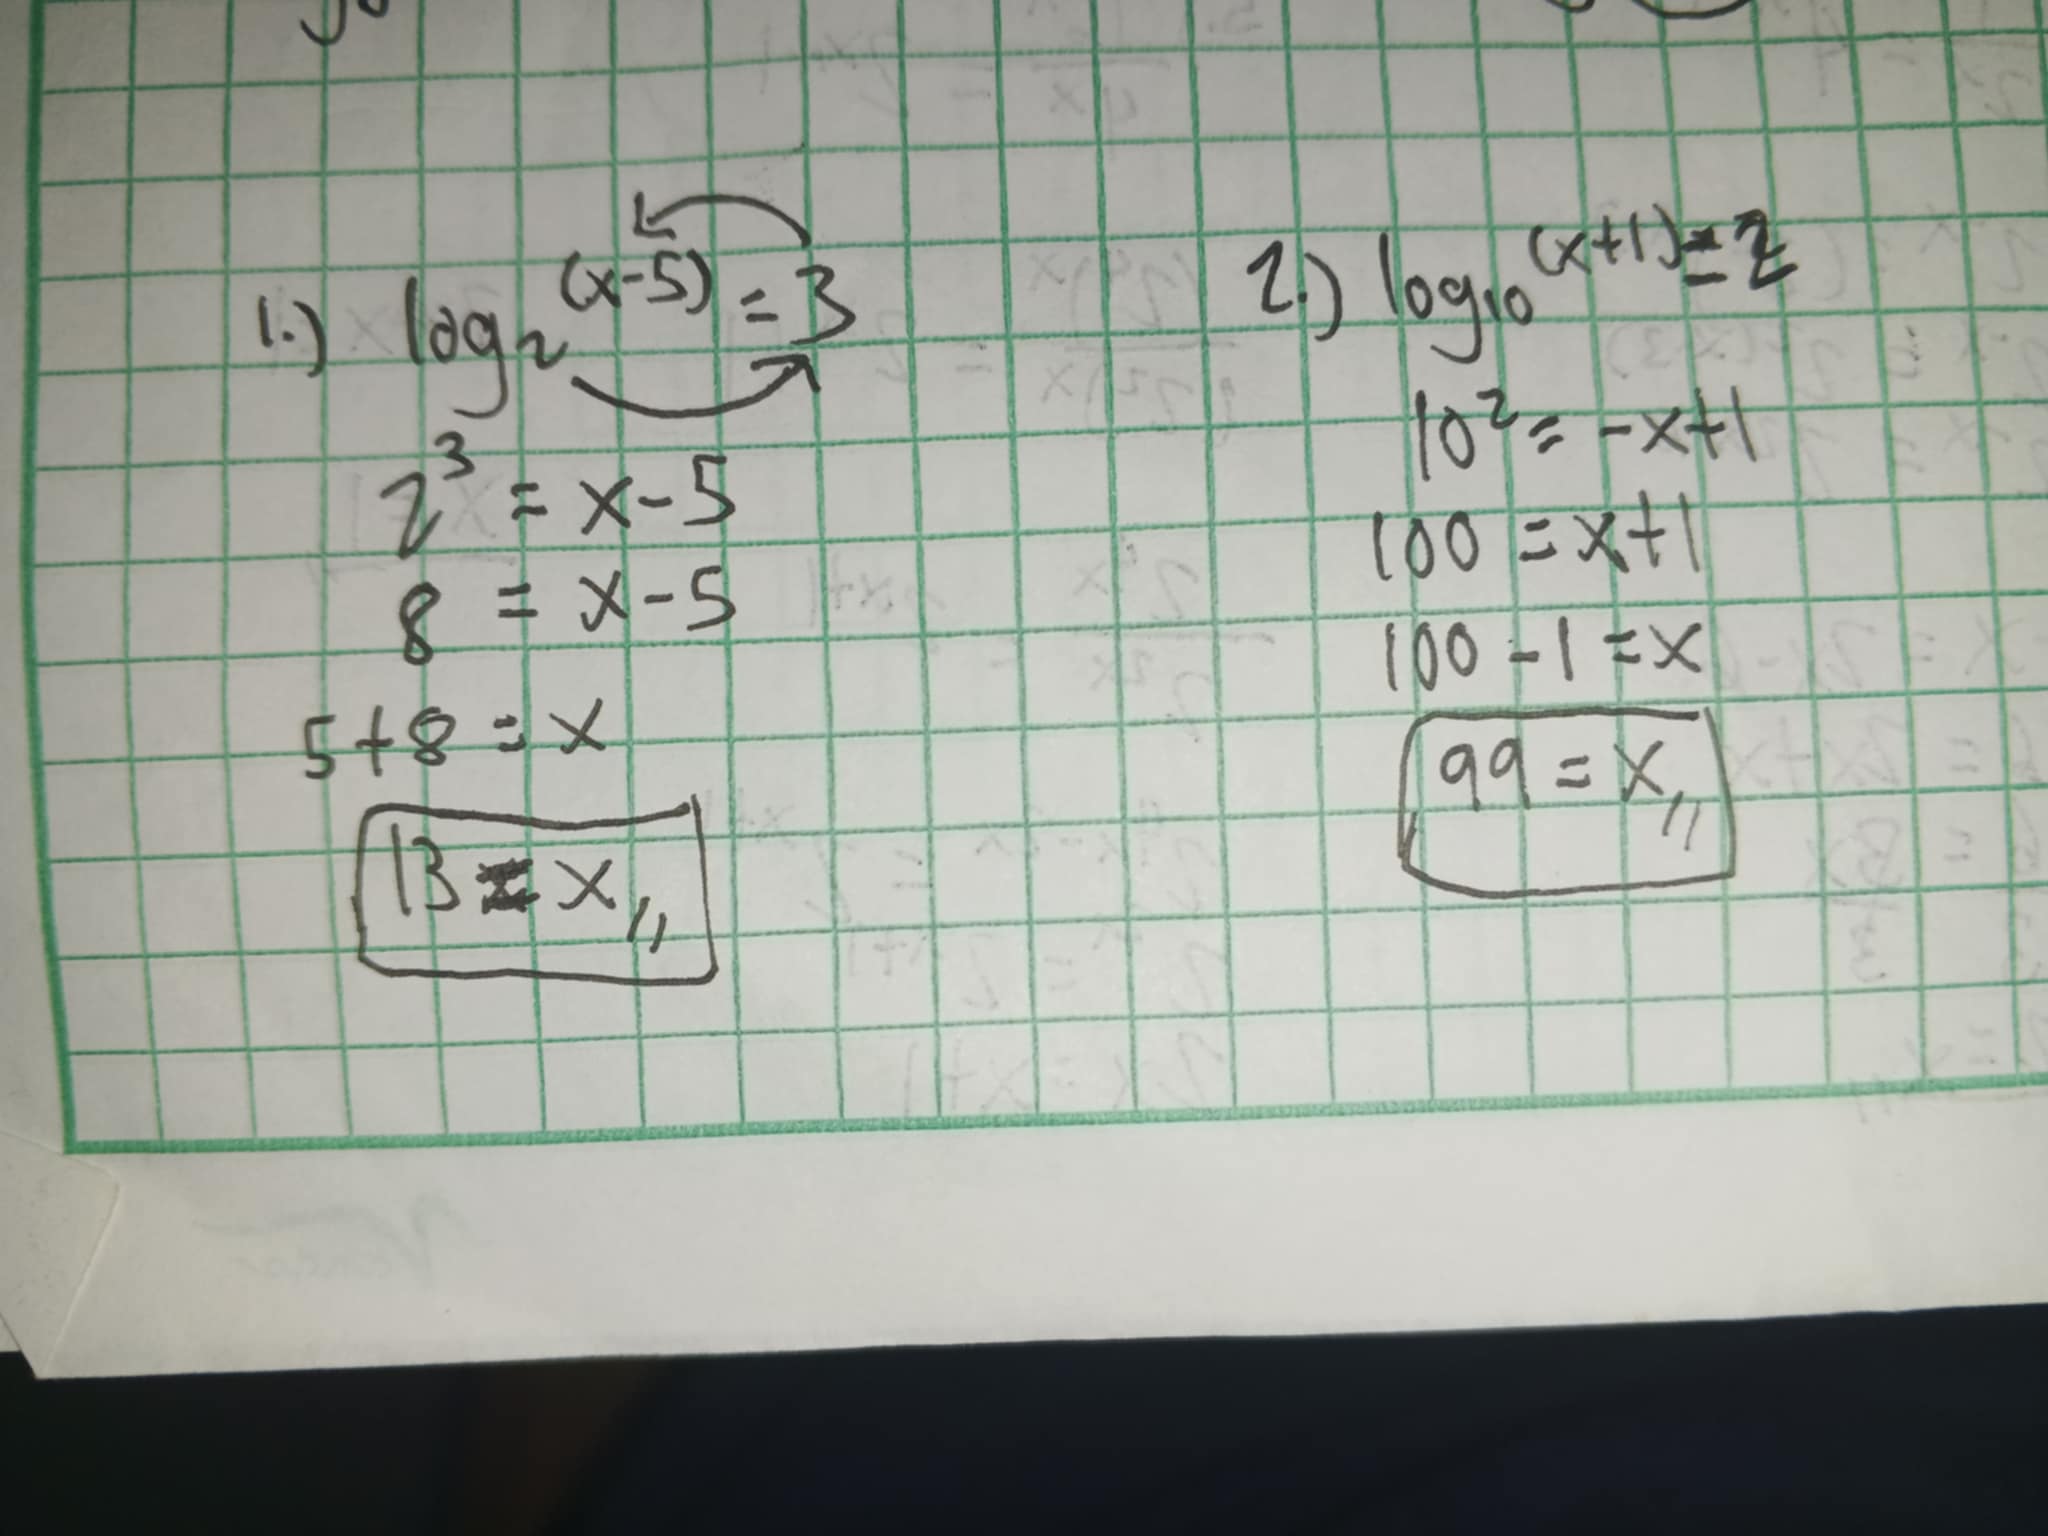 1.) log₂^(x-5) = 3
2³ = x - 5
8 = x - 5
5 + 8 = x
13 = x,,
2.) log₁₀^(x+1) = 2
10² = -x+1
100 = x+1
100 - 1 = x
99 = x,,